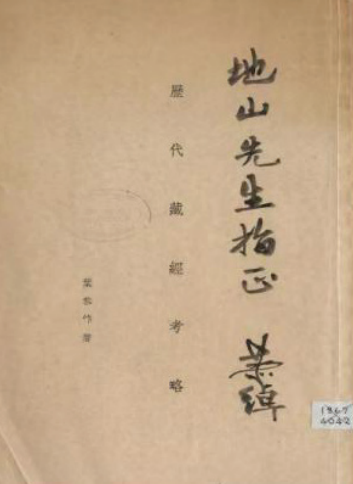 地山先生指正 恭綽
歷代藏經考略
葉恭綽著
1967
4042